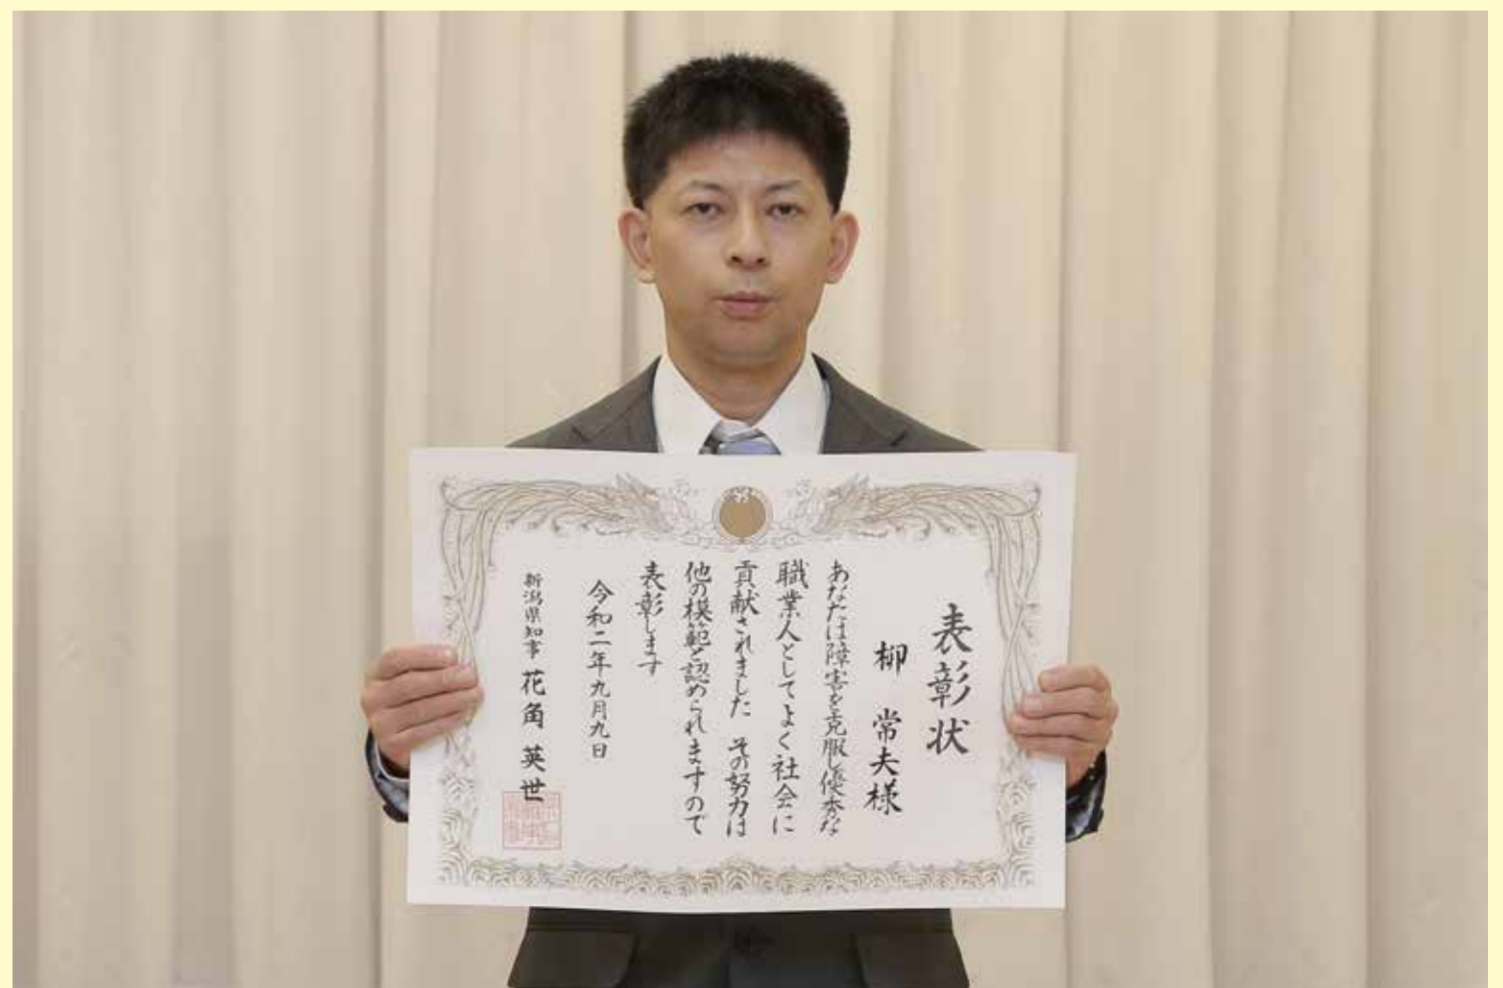 表彰状
柳 常夫様
あなたは障害を克服し優秀な
職業人としてよく社会に
貢献されました その努力は
他の模範と認められますので
表彰します
令和二年九月九日
新潟県知事 花角 英世